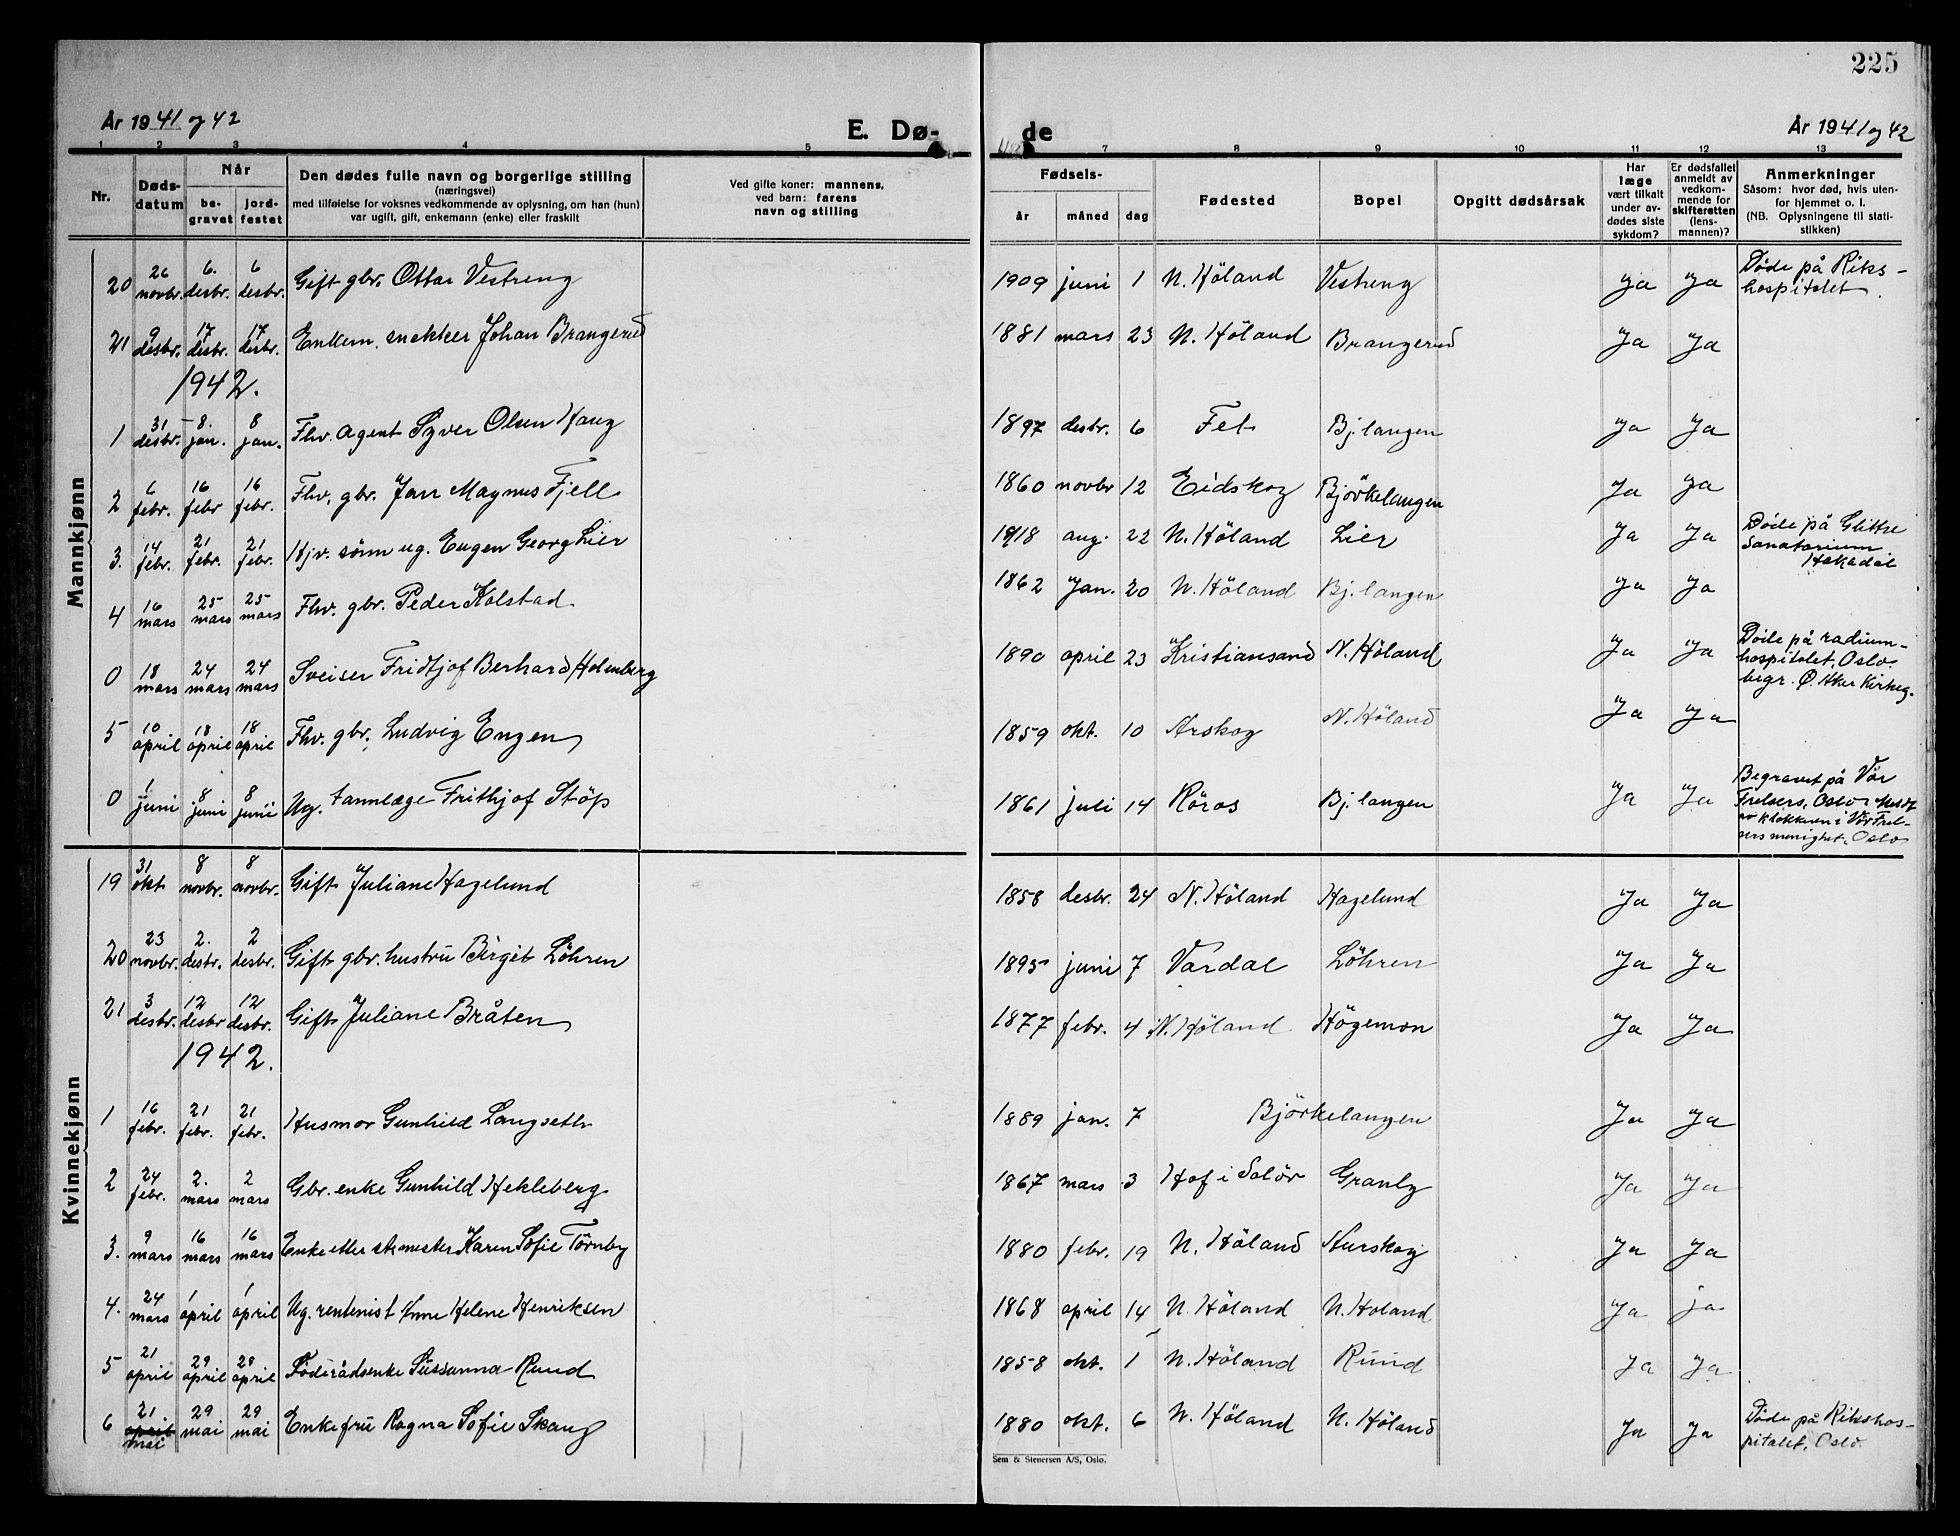 225
År 1941 og 42
E. Dø-
de
År 1941 og 42
1 2 3 4 5 7 8 9 10 11 12 13
Nr.
Døds-
datum
Når
be-
gravet
jord-
festet
Den dødes fulle navn og borgerlige stilling
(næringsvei)
med tilføielse for voksnes vedkommende av oplysning, om han (hun)
var ugift, gift, enkemann (enke) eller fraskilt
Ved gifte koner: mannens,
ved barn: farens
navn og stilling
Fødsels-
år måned dag
Fødested
Bopel
Opgitt dødsårsak
Har
læge
vært tilkalt
under av-
dødes siste
sykdom?
Er dødsfallet
anmeldt av
vedkom-
mende for
skifteretten
(lens-
mannen)?
Anmerkninger
Såsom: hvor død, hvis uten-
for hjemmet o. l.
(NB. Oplysningene til stati-
stikken)
Mannkjønn
20 26 novbr. 6. desbr. 6 desbr. Gift gbr. Ottar Vestreng 1909 juni 1 N. Höland Vestreng Ja Ja Döde på Riks-
hospitalet.
21 9 desbr. 17 desbr. 17 desbr. Enkem. snekker Johan Brangerud 1881 mars 23 N. Höland Brangerud Ja Ja
1942.
1 31 desbr. 8. jan. 8 jan. Fhv. agent Syver Olsen Haug 1897 desbr. 6 Fet Bj. langen Ja Ja
2 6 febr. 16 febr 16 febr. Fhv. gbr. Jan Magnus Fjell 1860 novbr 12 Eidskog Björkelangen Ja Ja
3. 14 febr. 21 febr. 21 febr. Hjv. sönn ug. Eugen Georg Lier 1918 aug. 22 N. Höland Lier Ja Ja Döde på Glittre
Sanatorium
Hakadal
4 16 mars 25 mars 25 mars Fhv. gbr. Peder Kolstad 1862 jan. 20 N. Höland Bj. langen Ja Ja
0 18 mars 24 mars 24 mars Sveiser Fridtjof Berhard Holmberg 1890 april 23 Kristiansand N. Höland Ja Ja Döde på radium-
hospitalet, Oslo.
begr. Ø. Aker Kirkeg.
5 10 april 18 april 18 april Fhv. gbr. Ludvig Engen 1859 okt. 10 Arskog N. Höland Ja Ja
0 1 juni 8 juni 8 juni Ug. tannlæge Frithjof Stöp 1861 juli 14 Röros Bj. langen Ja Ja Begravet på Vår
Frelsers, Oslo. Meldt
av klokkeren i Vår Frel-
sers menighet, Oslo
Kvinnekjønn
19 31 okt 8 novbr. 8 novbr. Gift Juliane Hagelund 1858 desbr. 24 N. Höland Hagelund Ja Ja
20 23 novbr. 2. desbr. 2 desbr. Gift gbr. hustru Birgit Löhren 1895 juni 7 Vardal Löhren Ja Ja
21 3 desbr. 12 desbr 12 desbr. Gift Juliane Bråten 1877 febr. 4 N. Höland Högemon Ja Ja
1942.
1 16 febr. 21 febr. 21 febr. Husmor Gunhild Langseth 1889 jan. 7 Björkelangen Ja Ja
2 24 febr. 2. mars 2 mars Gbr. enke Gunhild Hekleberg 1867 mars 3 Hof i Solör Granly Ja Ja
3. 9 mars 16 mars 16 mars Enke etter st.mester Karen Sofie Törnby 1880 febr. 19 N. Höland Aurskog Ja Ja
4. 24 mars 1 april 1 april Ug. rentenist Anne Helene Henriksen 1868 april 14 N. Höland N. Holand Ja ja
5 21 april 29 april 29 april Föderådsenke Sussanna Ruud 1858 okt. 1 N. Höland Ruud Ja Ja
6 21 april mai 29 mai 29 mai Enkefru Ragna Sofie Skaug 1880 okt. 6 N. Höland N. Höland Ja Ja Döde på Rikshos-
pitalet, Oslo.
Sem & Stenersen A/S, Oslo.